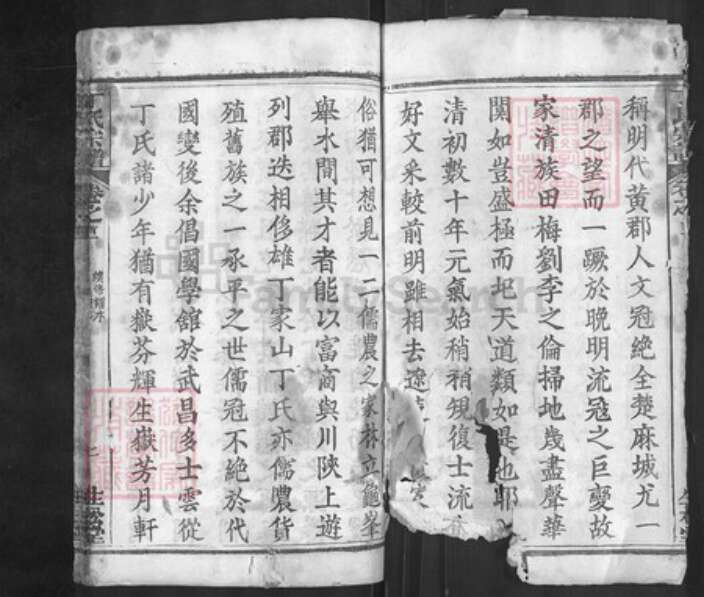 稱明代黄郡人文冠絶全楚麻城尤一
郡之望而一蹶於晚明流冦之巨變故
家清族田梅劉李之倫掃地幾盡聲華
闃如豈盛極而圮天道類如是也耶
清初數十年元氣始稍稍規復士流
好文采較前明雖相去遼
俗猶可想見一二儒農之家林立龜峯
舉水間其才者能以富商與川陝上遊
列郡迭相侈雄丁家山丁氏亦儒農貨
殖舊族之一承平之世儒冠不絶於代
國變後余倡國學舘於武昌多士雲從
丁氏諸少年猶有嶽芬輝生嶽芳月軒
氏宗譜
卷之五
續修譜序
七
FamilySearch